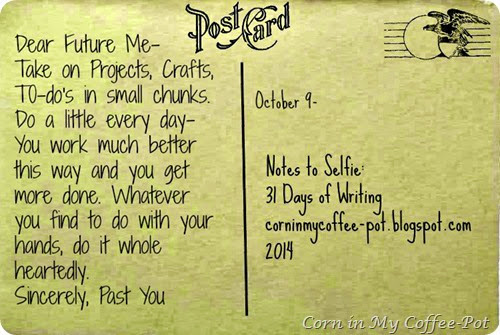 Post Card
Dear Future Me-
Take on Projects, Crafts,
TO-do's in small chunks.
Do a little every day-
You work much better
this way and you get
more done. Whatever
you find to do with your
hands, do it whole
heartedly.
Sincerely, Past You
October 9-
Notes to Selfie:
31 Days of Writing
corninmycoffee-pot.blogspot.com
2014
Corn in My Coffee-Pot